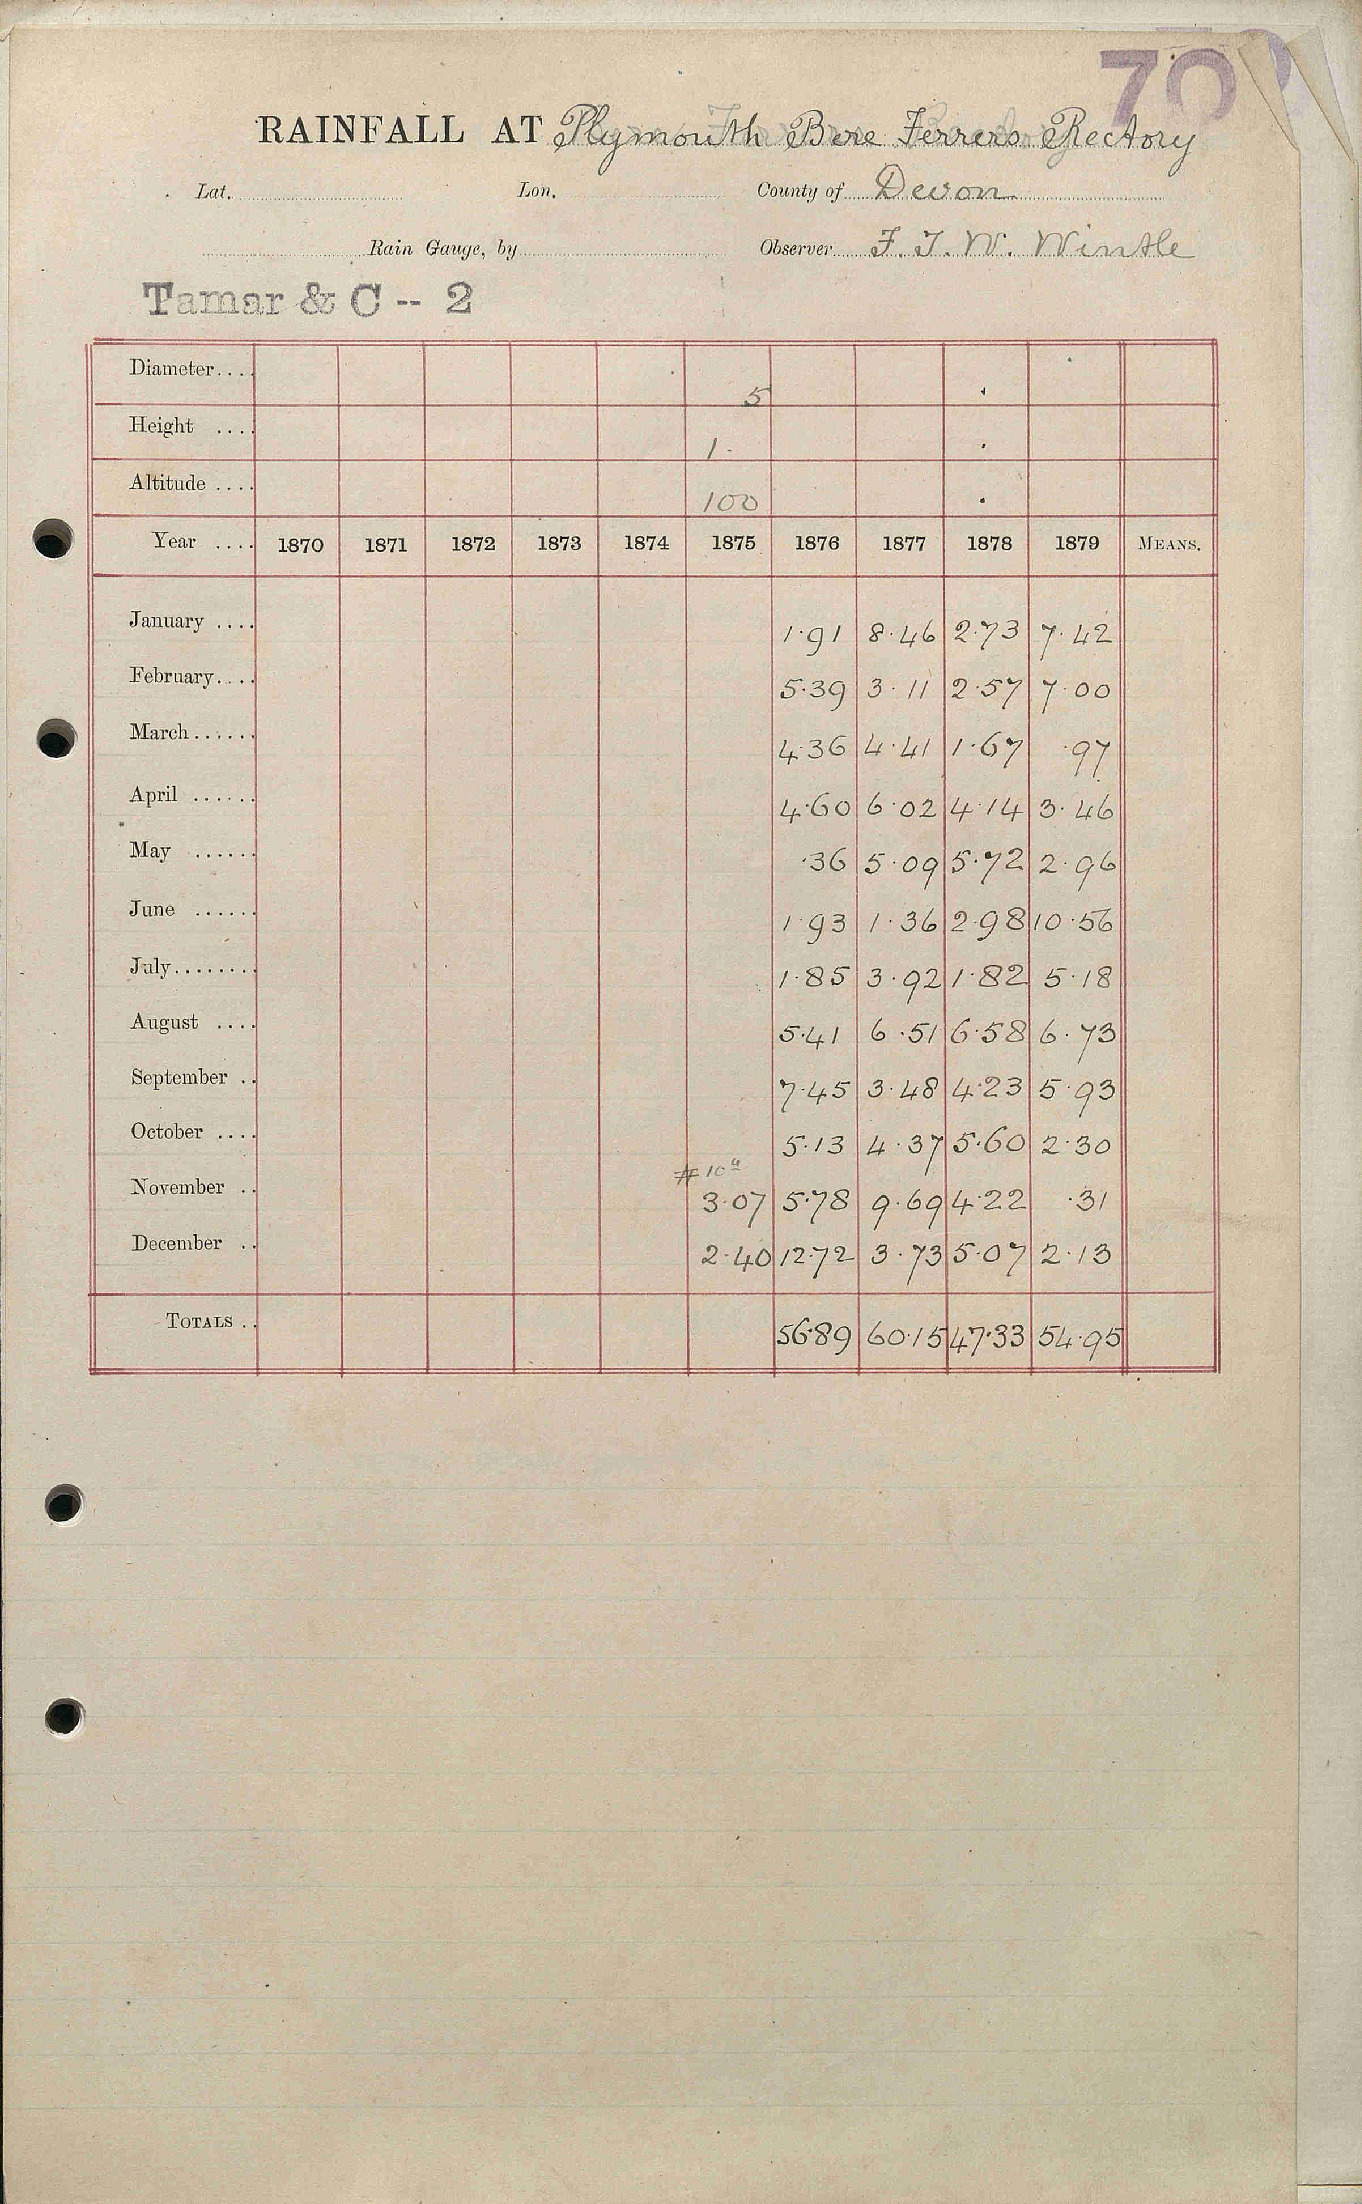 70
RAINFALL AT Plymouth Bere Ferrers Rectory
Lat. Lon. County of Devon
Rain Gauge, by Observer F. J. W. Wintle
Tamar & C -- 2
Diameter.... 5
Height .... 1.
Altitude .... 100
Year .... 1870 1871 1872 1873 1874 1875 1876 1877 1878 1879 MEANS.
January .... 1.91 8.46 2.73 7.42
February.... 5.39 3.11 2.57 7.00
March...... 4.36 4.41 1.67 .97
April ...... 4.60 6.02 4.14 3.46
May ...... .36 5.09 5.72 2.96
June ...... 1.93 1.36 2.98 10.56
July........ 1.85 3.92 1.82 5.18
August .... 5.41 6.51 6.58 6.73
September .. 7.45 3.48 4.23 5.93
October .... 5.13 4.37 5.60 2.30
November .. 3.07 5.78 9.69 4.22 .31
December .. 2.40 12.72 3.73 5.07 2.13
TOTALS .. 56.89 60.15 47.33 54.95